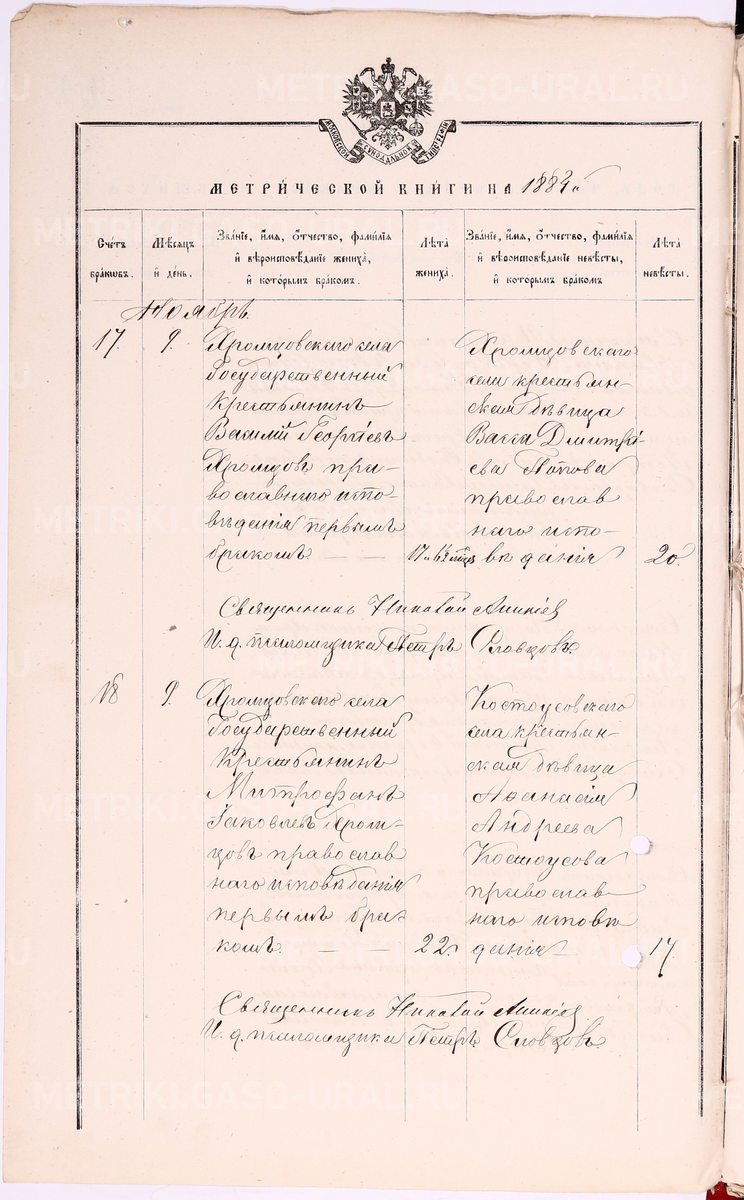 МОСКОВСКОЙ СѴНОДАЛЬНОЙ ТИПОГРАФІИ
МЕТРИЧЕСКОЙ КНИГИ НА 1884
Счетъ браковъ.
Мѣсяцъ и день.
Званіе, имя, отчество, фамилія и вѣроисповѣданіе жениха, и которымъ бракомъ.
Лѣта жениха.
Званіе, имя, отчество, фамилія и вѣроисповѣданіе невѣсты, и которымъ бракомъ.
Лѣта невѣсты.
Ноябрь.
17. 9.
Хромцовскаго села
Государственный
Крестьянинъ
Василій Георгіевъ
Хромцовъ пра-
вославнаго испо-
вѣданія первымъ
бракомъ — —
17 и 6
Хромцовскаго
села крестьян-
ская дѣвица
Васса Дмитрі-
ева Попова
православ
наго испо-
вѣданія
20.
Священникъ Николай Аникіев
И. д. псаломщика Петръ Словцовъ.
18 9.
Хромцовскаго села
Государственный
Крестьянинъ
Митрофанъ
Іаковлевъ Хром-
цовъ православ
наго исповѣданія
первымъ бра-
комъ. — —
22.
Костоусовскаго
села крестьян-
ская дѣвица
Аѳанасія
Андреева
Костоусова
православ-
наго исповѣ
данія —
17.
Священникъ Николай Аникіев
И. д. псаломщика Петръ Словцовъ.
METRIKI.GASO-URAL.RU